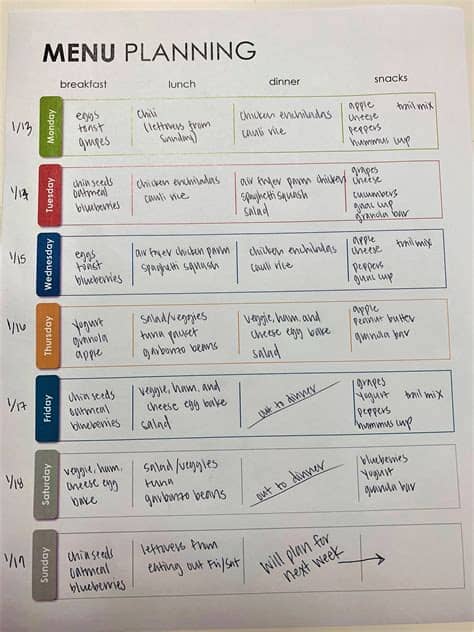 MENU PLANNING
breakfast
lunch
dinner
snacks
1/13
Monday
eggs
toast
grapes
chili
(leftovers from
Sunday)
chicken enchiladas
cauli rice
apple
cheese
peppers
hummus cup
trail mix
1/14
Tuesday
chia seeds
oatmeal
blueberries
chicken enchiladas
cauli rice
air fryer parm chicken
spaghetti squash
salad
grapes
cheese
cucumbers
guac cup
granola bar
1/15
Wednesday
eggs
toast
blueberries
air fryer chicken parm
spaghetti squash
chicken enchiladas
cauli rice
apple
cheese
peppers
guac cup
trail mix
1/16
Thursday
yogurt
granola
apple
salad/veggies
tuna packet
garbonzo beans
veggie, ham, and
cheese egg bake
salad
apple
peanut butter
granola bar
1/17
Friday
chia seeds
oatmeal
blueberries
veggie, ham, and
cheese egg bake
salad
out to dinner
grapes
yogurt
peppers
hummus cup
trail mix
1/18
Saturday
veggie, ham,
cheese egg
bake
salad/veggies
tuna
garbonzo beans
out to dinner
blueberries
yogurt
granula bar
1/19
Sunday
chia seeds
oatmeal
blueberries
leftovers from
eating out Fri/Sat
will plan for
next week